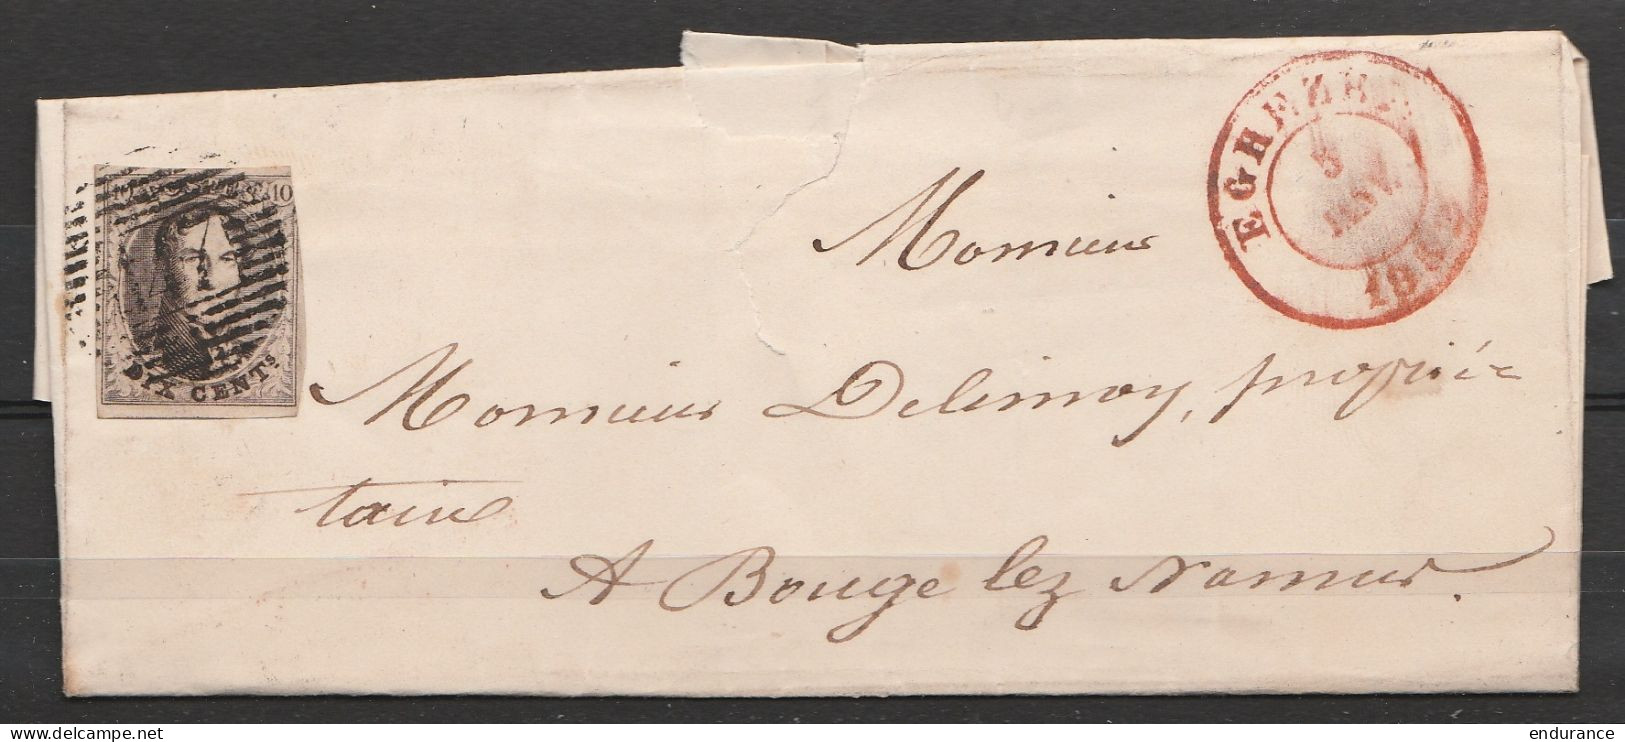 10
DIX CENTS
EGHEZEE
5
JANV.
1852
Monsieur
Monsieur Delimoy, proprié-
taire
A Bouge lez Namur.
delcampe.net
endurance